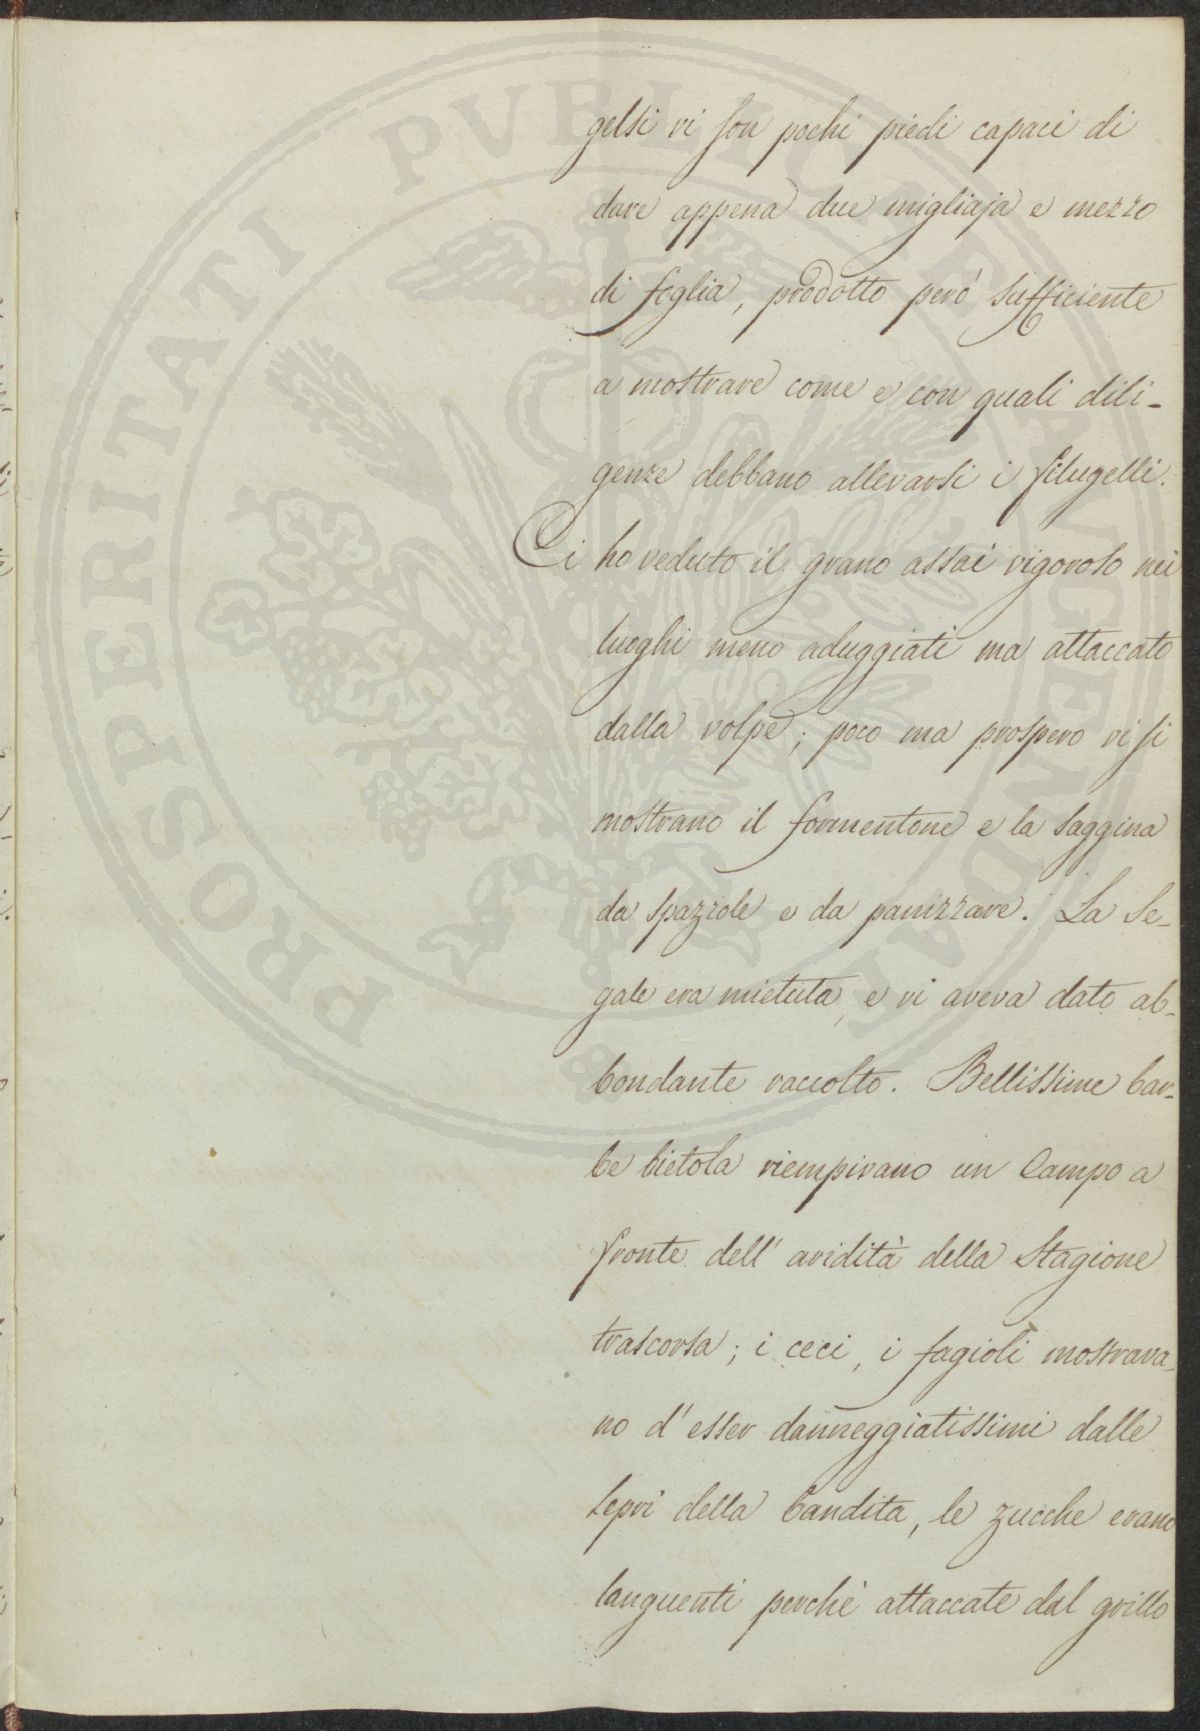 gelsi vi son pochi piedi capaci di
dare appena due migliaja e mezzo
di foglia, prodotto però sufficiente
a mostrare come e con quali dili-
genze debbano allevarsi i filugelli.
Ci ho veduto il grano assai vigoroso nei
luoghi meno aduggiati ma attaccato
dalla volpe; poco ma prospero vi si
mostrano il formentone e la saggina
da spazzole e da panizzare. La Se-
gale era mietuta, e vi aveva dato ab-
bondante raccolto. Bellissime bar-
be bietola riempivano un Campo a
fronte dell' aridità della Stagione
trascorsa; i ceci, i fagioli mostrava-
no d' esser danneggiatissimi dalle
Lepri della bandita, le zucche erano
languenti perchè attaccate dal grillo
PROSPERITATI PVBLICAE AVGENDAE